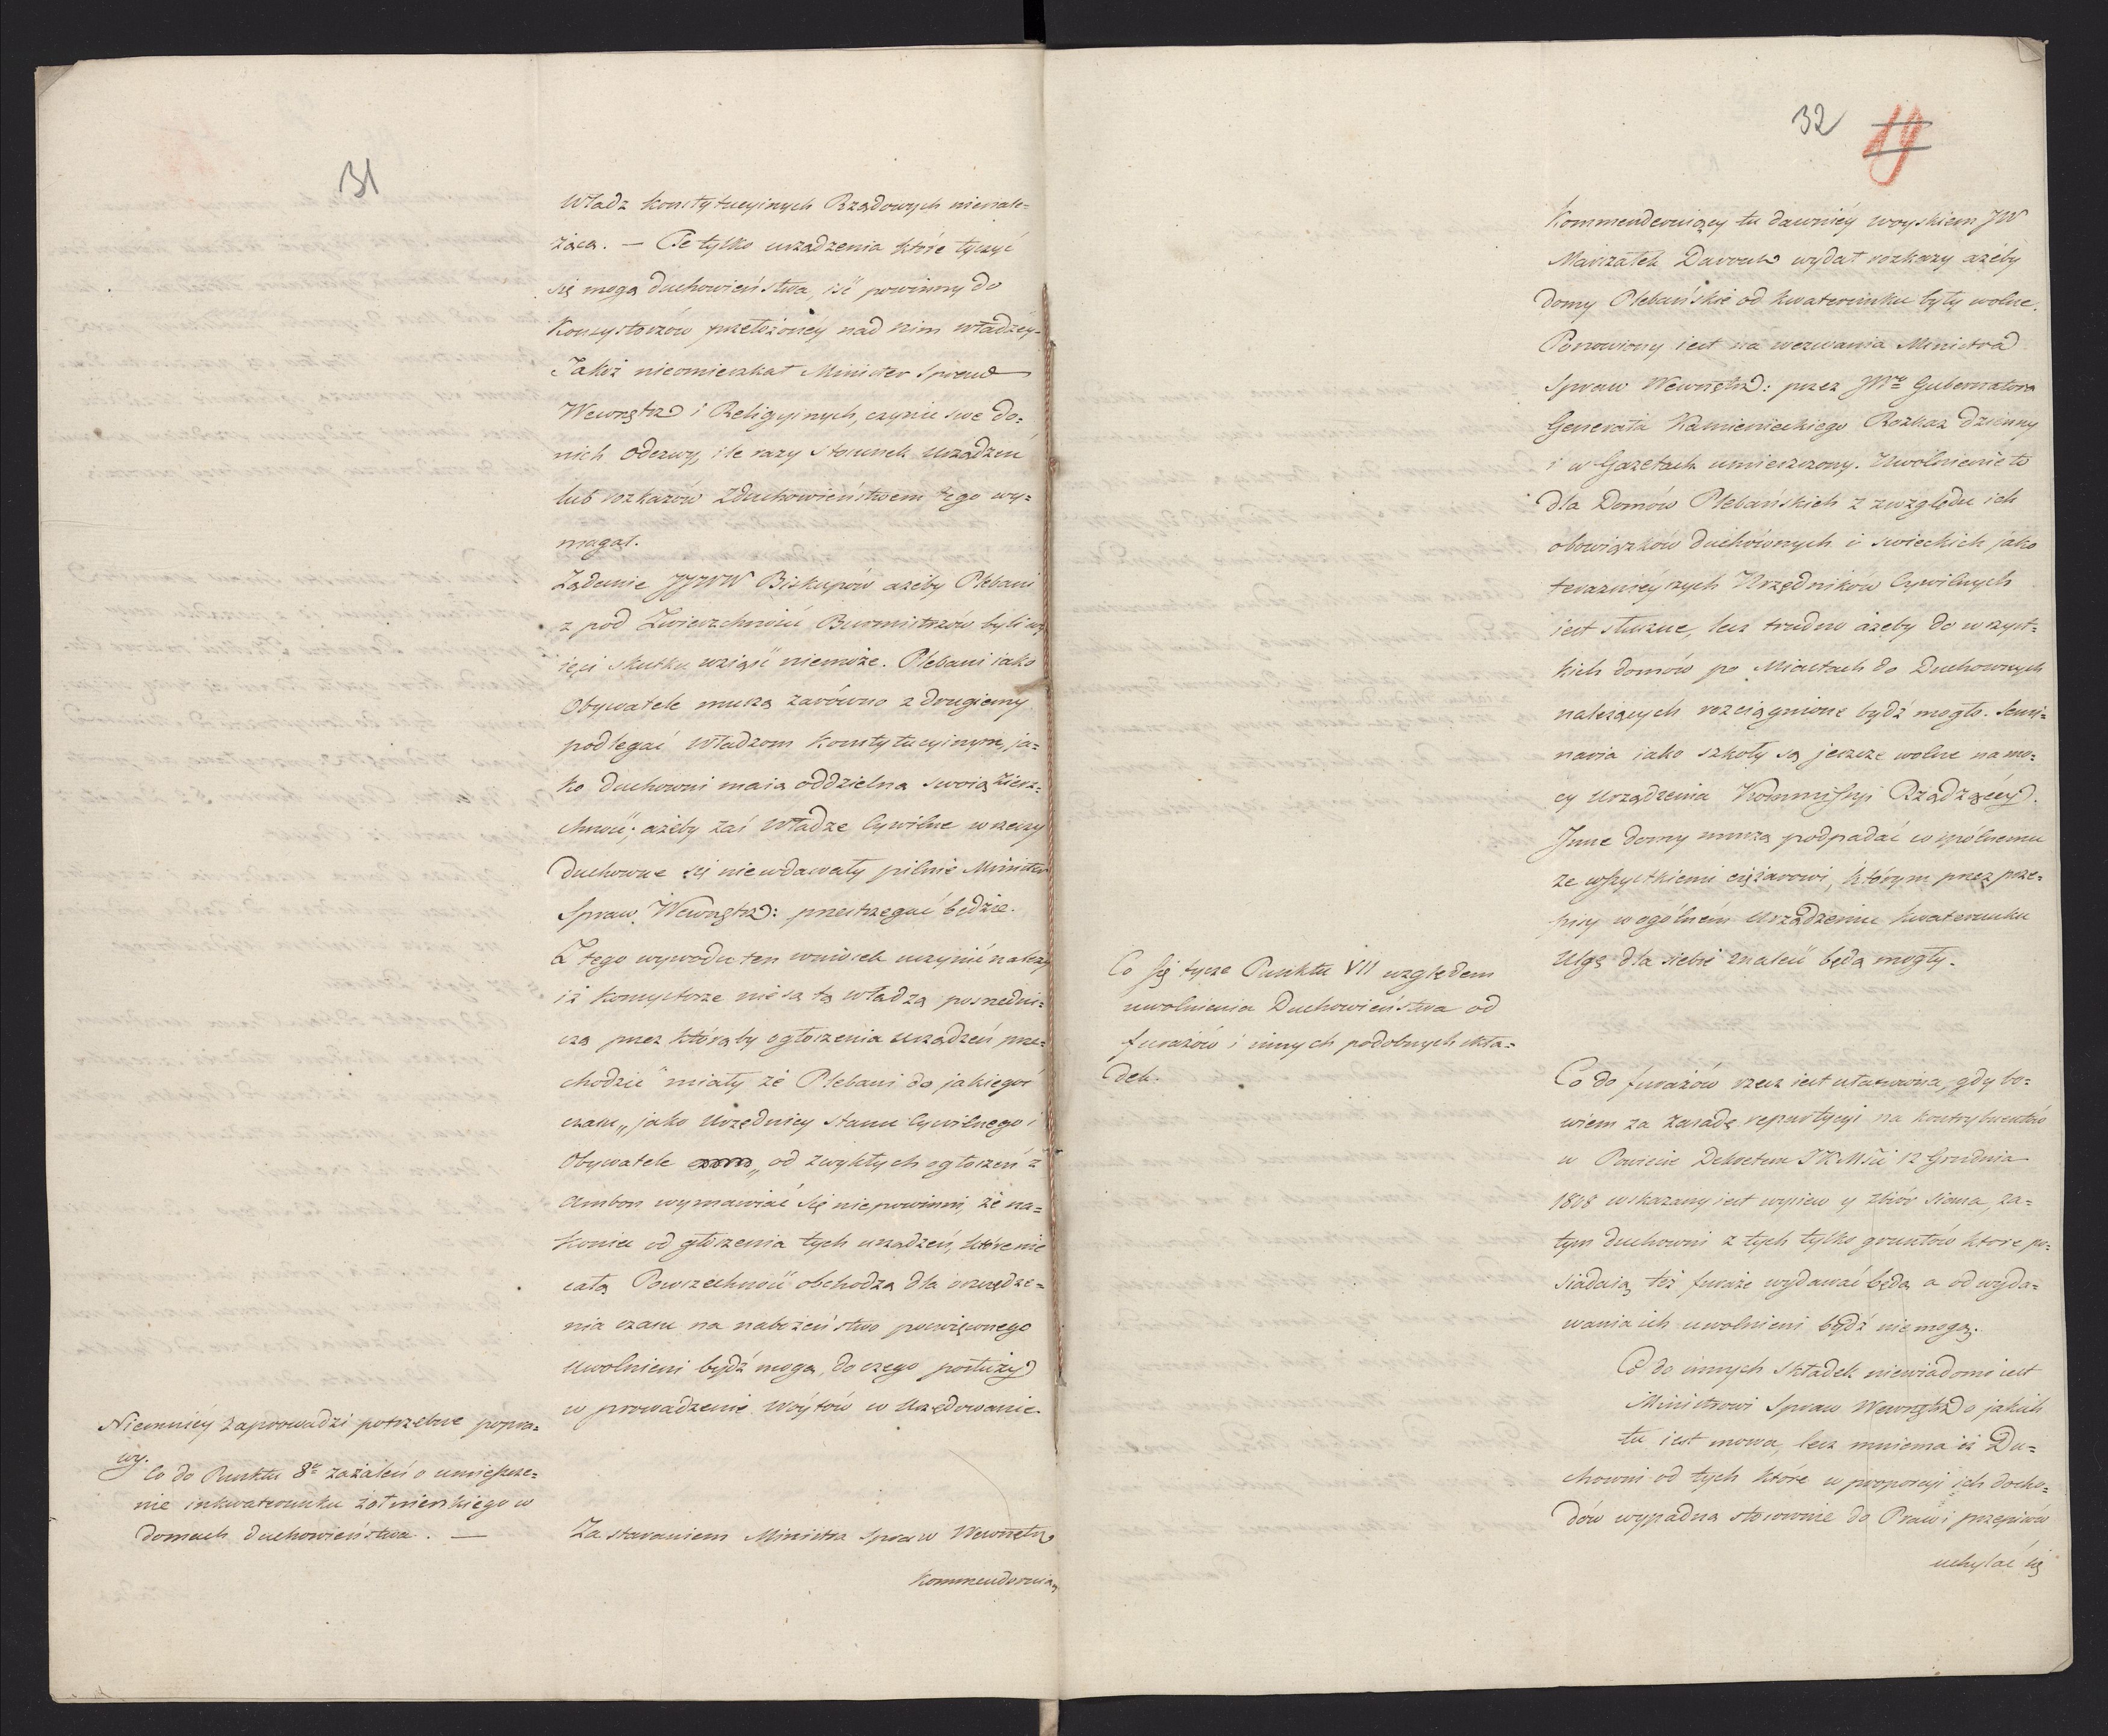 31
Władz konstytucyinych Rządowych nienale=
żąca. — Te tylko urządzenia które tyczyć
się mogą duchowieństwa, iść powinny do
Konsystorzów przełożonéy nad nim władzéy.
Jakoż nieomieszkał Minister Spraw
Wewnętrz i Religyinych, czynić swe do=
nich odezwy, ile razy stosunek urządzeń
lub rozkazów z duchowieństwem tego wy=
magał.
Żądanie JJWW Biskupów ażeby Plebani
z pod Zwierzchności Burmistrzów byli wy
ięci skutku wziąść niemoże. Plebani iako
Obywatele muszą zarówno z drugiemy
podlegać Władzom Konstytucyinym, ja=
ko duchowni maią oddzielną swoią Zwierz=
chność; ażeby zaś Władze Cywilne w rzeczy
duchowne się niewdawały pilnie Minister
Spraw Wewnętrz: przestrzegać będzie.
Z tego wywodu ten wniosek uczynić należy
iż konsystorze nie są tą władzą posredni=
czą przez którąby ogłoszenia urządzeń prze=
chodzić miały że Plebani do jakiegoś
czasu „jako Urzędnicy stanu Cywilnego i
Obywatele „od zwykłych ogłoszeń z
Ambon wymawiać się niepowinni, że na=
koniec od głoszenia tych urządzeń, które nie
całą Powszechność obchodzą dla oszczędze=
nia czasu na nabożeństwo poswięconego
uwolnieni bydź mogą, do czego posłuży
w prowadzenie Wóytów w Urzędowanie.
Niemniéy zaprowadzi potrzebne popra=
wy.
Co do Punktu 8º zażaleń o umieszcze=
nie inkwaterunku żołnierskiego w
domach duchowieństwa. —
Za staraniem Ministra Spraw Wewnętrz
Kommenderuią
32 19
Kommenderuiący tu dawniéy woyskiem JW
Marszałek Davoust wydał rozkazy ażeby
domy Plebańskie od kwaterunku były wolne.
Ponowiony iest na wezwania Ministra
Spraw Wewnętrz: przez JWº Gubernatora
Generała Kamienieckiego Rozkaz dzienny
i w Gazetach umieszczony. Uwolnienie to
dla Domów Plebańskich z względu ich
obowiązków duchównych i swieckich jako
terazniéyszych Urzędników Cywilnych
iest słuszne, lecz trudno ażeby do wszyst=
kich domów po Miastach do Duchownych
należących rozciągnione bydź mogło. Semi=
naria iako szkoły są jeszcze wolne na mo=
cy Urządzenia Kommissyi Rządzącéy.
Inne domy muszą podpadać wspólnemu
ze wszystkiemi ciężarowi, którym przez prze=
pisy w ogólném Urządzeniu kwaterunku
Ulgę dla siebie znaleść będą mogły.
Co się tycze Punktu VII względem
uwolnienia Duchowieństwa od
furażów i innych podobnych skła=
dek.
Co do furażów rzecz iest ustanowiona, gdy bo=
wiem za zasadę repartycyi na kontrybuentów
w Powiecie Dekretem JKMści 12 Grudnia
1808 wskazany iest wysiew y zbiór siana, za=
tym duchowni z tych tylko gruntów które po=
siadaią, też furaże wydawać będą a od wyda=
wania ich uwolnieni bydź nie mogą.
Co do innych składek niewiadomo iest
Ministrowi Spraw Wewnętrz o jakich
tu iest mowa, lecz mniema iż Du=
chowni od tych które w proporcyi ich docho=
dów wypadną stosownie do Praw i przepisów
uchylać się